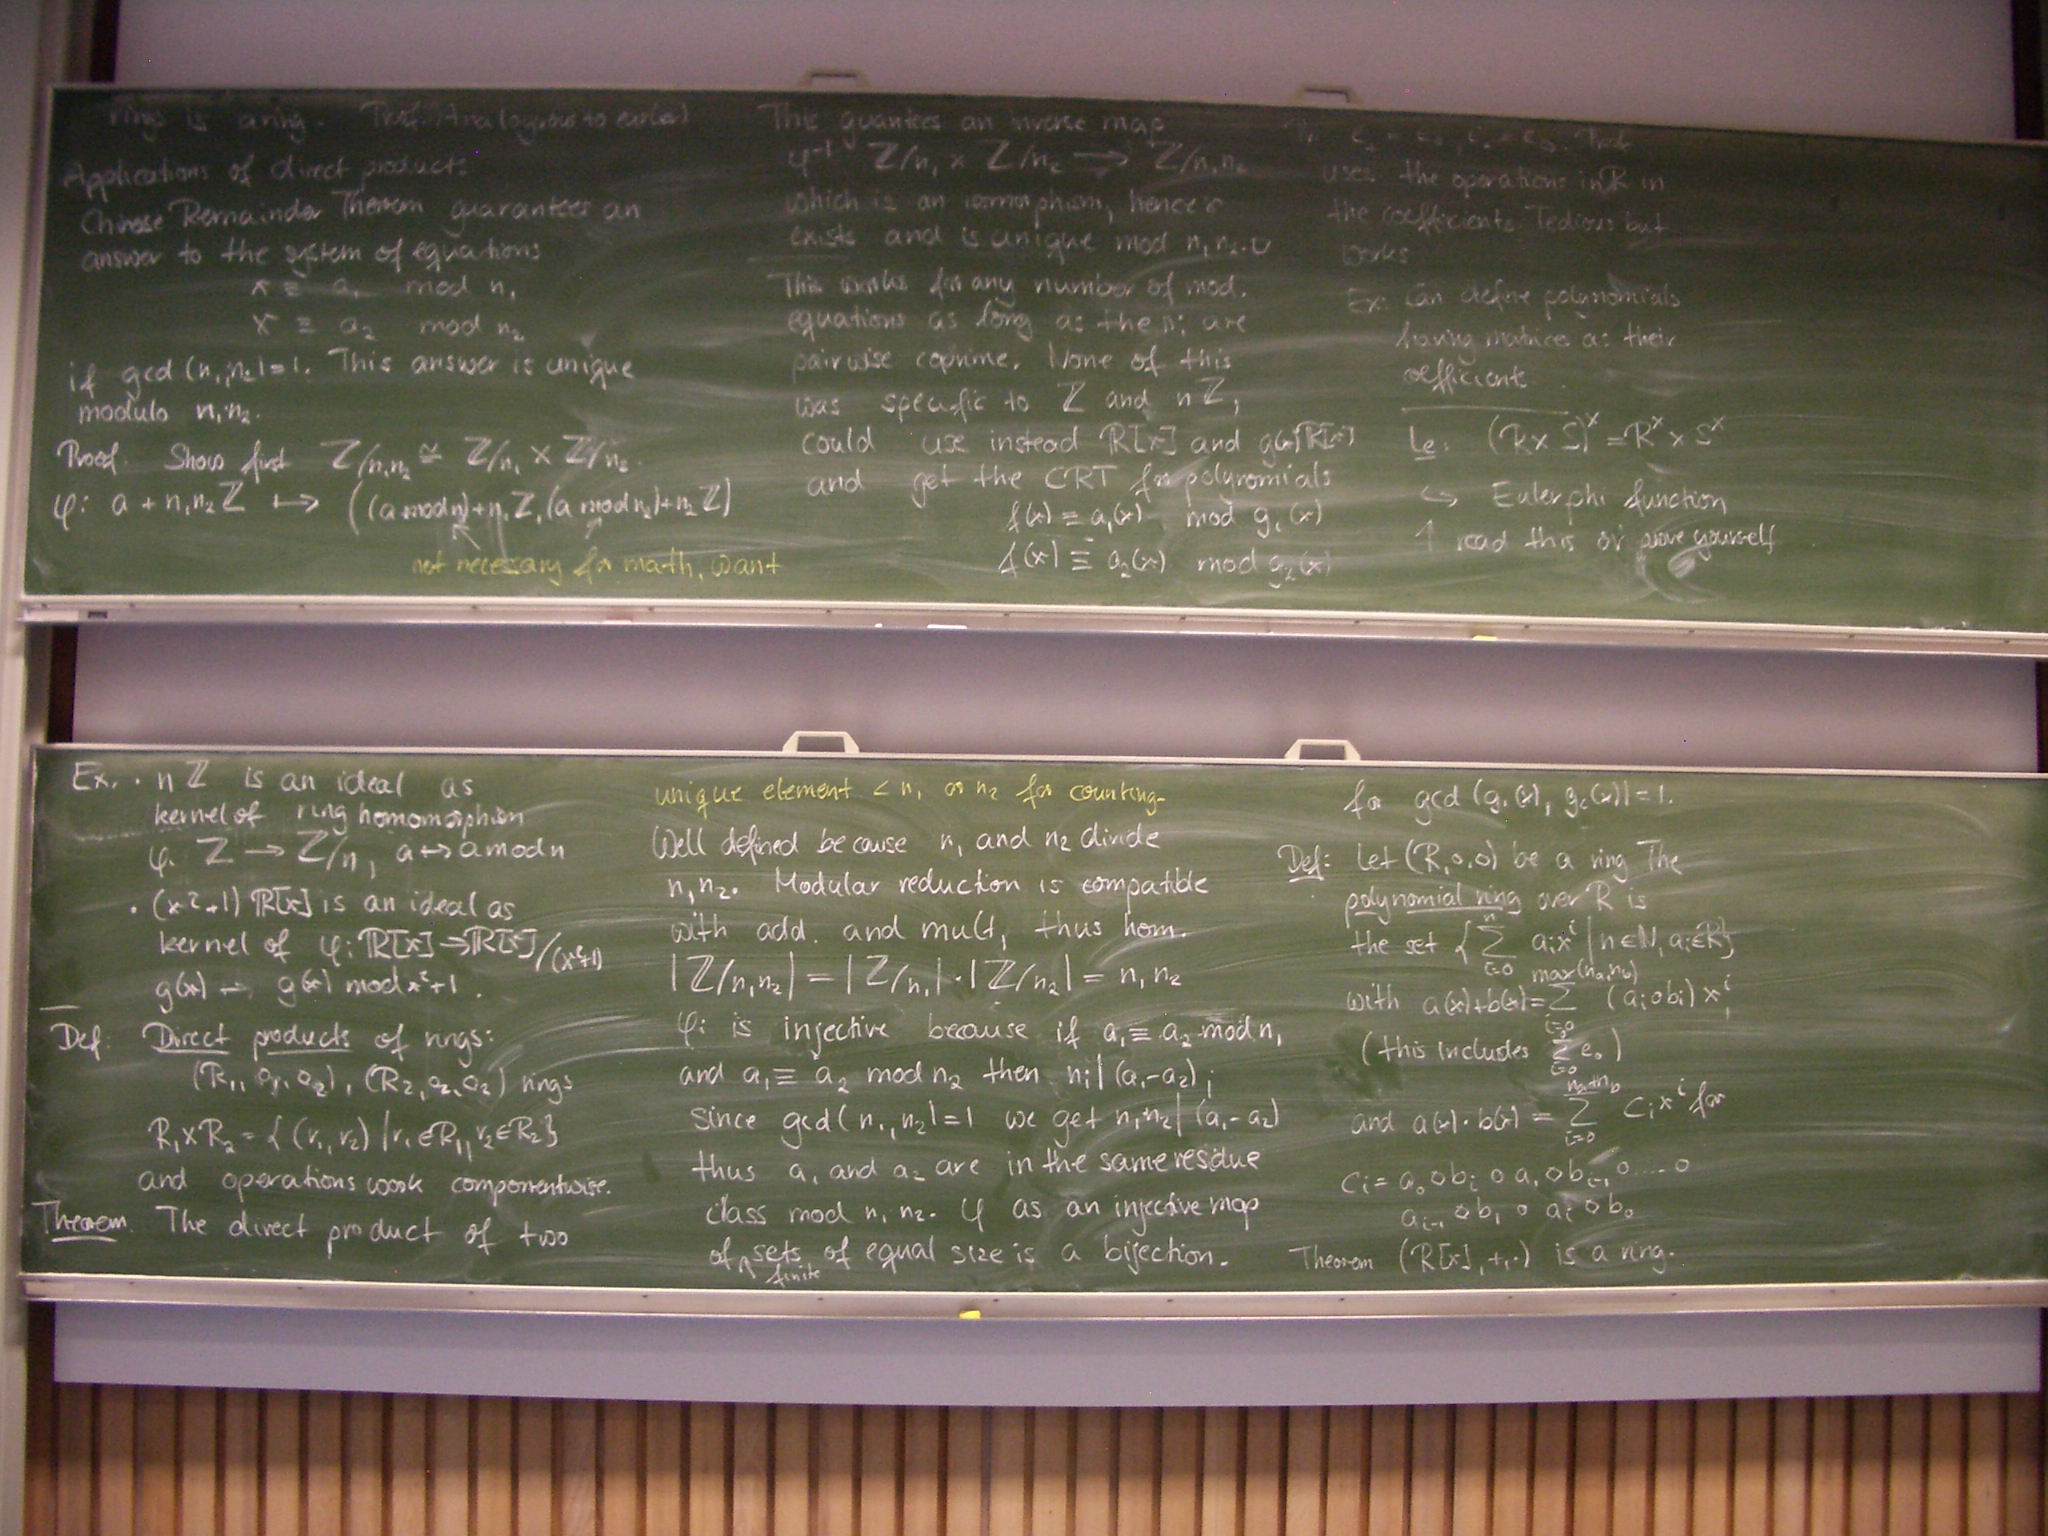 rings is a ring. Proof: Analoguous to earlier
Applications of direct products:
Chinese Remainder Theorem guarantees an
answer to the system of equations
x ≡ a₁ mod n₁
x ≡ a₂ mod n₂
if gcd(n₁,n₂)=1. This answer is unique
modulo n₁n₂.
Proof. Show first ℤ/n₁n₂ ≅ ℤ/n₁ × ℤ/n₂.
φ: a + n₁n₂ℤ ↦ ((a mod n₁)+n₁ℤ, (a mod n₂)+n₂ℤ)
not necessary for math, want
This guantees an inverse map
φ⁻¹ ℤ/n₁ × ℤ/n₂ → ℤ/n₁n₂
which is an isomorphism, hence
exists and is unique mod n₁n₂.
This works for any number of mod.
equations as long as the nᵢ are
pairwise coprime. None of this
was specific to ℤ and nℤ,
could use instead ℝ[x] and g(x)ℝ[x]
and get the CRT for polynomials
f(x) ≡ a₁(x) mod g₁(x)
f(x) ≡ a₂(x) mod g₂(x)
uses the operations in R in
the coefficients. Tedious but
works
Ex: Can define polynomials
having matrices as their
coefficients.
Le: (R×S)ˣ = Rˣ × Sˣ
↪ Euler phi function
↑ read this or prove yourself
Ex. · nℤ is an ideal as
kernel of ring homomorphism
φ: ℤ → ℤ/n, a ↦ a mod n
· (x²+1)ℝ[x] is an ideal as
kernel of φ: ℝ[x] → ℝ[x]/(x²+1)
g(x) ↦ g(x) mod x²+1.
Def: Direct products of rings:
(R₁, o₁, ◇₁), (R₂, o₂, ◇₂) rings
R₁×R₂ = {(r₁, r₂) | r₁∈R₁, r₂∈R₂}
and operations work componentwise.
Theorem. The direct product of two
unique element < n₁ or n₂ for counting.
Well defined because n₁ and n₂ divide
n₁n₂. Modular reduction is compatible
with add. and mult, thus hom.
|ℤ/n₁n₂| = |ℤ/n₁|·|ℤ/n₂| = n₁n₂
φ: is injective because if a₁ ≡ a₂ mod n₁
and a₁ ≡ a₂ mod n₂ then nᵢ|(a₁-a₂);
since gcd(n₁,n₂)=1 we get n₁n₂|(a₁-a₂)
thus a₁ and a₂ are in the same residue
class mod n₁n₂. φ as an injective map
of ∧ sets of equal size is a bijection.
finite
for gcd(g₁(x), g₂(x))=1.
Def: Let (R,o,◇) be a ring The
polynomial ring over R is
the set {∑ᵢ₌₀ⁿ aᵢxⁱ | n∈ℕ, aᵢ∈R}
with a(x)+b(x) = ∑ᵢ₌₀^max(nₐ,n_b) (aᵢ o bᵢ) xⁱ,
(this includes ∑ᵢ₌₀ e₀)
and a(x)·b(x) = ∑ᵢ₌₀^(nₐ+n_b) cᵢxⁱ for
cᵢ = a₀◇bᵢ o a₁◇bᵢ₋₁ o .... o
aᵢ₋₁◇b₁ o aᵢ◇b₀
Theorem (R[x],+,·) is a ring.